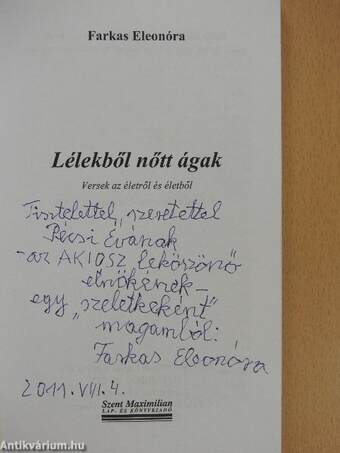 Farkas Eleonóra
Lélekből nőtt ágak
Versek az életről és életből
Tisztelettel, szeretettel
Pécsi Évának
- az AKIOSZ leköszönő
elnökének -
egy „szeletkeként"
magamból:
Farkas Eleonóra
2011. VIII. 4.
Szent Maximilian
LAP- ÉS KÖNYVKIADÓ
Antikvárium.hu